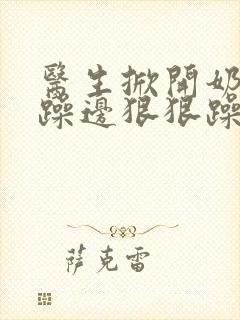 醫生掀開奶
躁邊狠狠躁
萨克雷